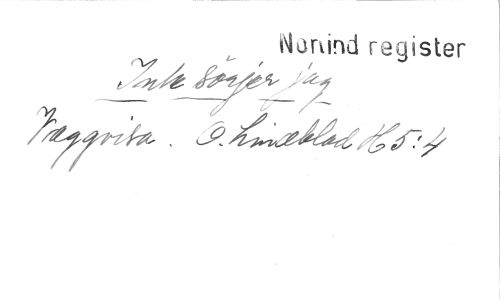 Norlind register
Inte sörjer jag
Vaggvisa. O. Lindblad H 5:4